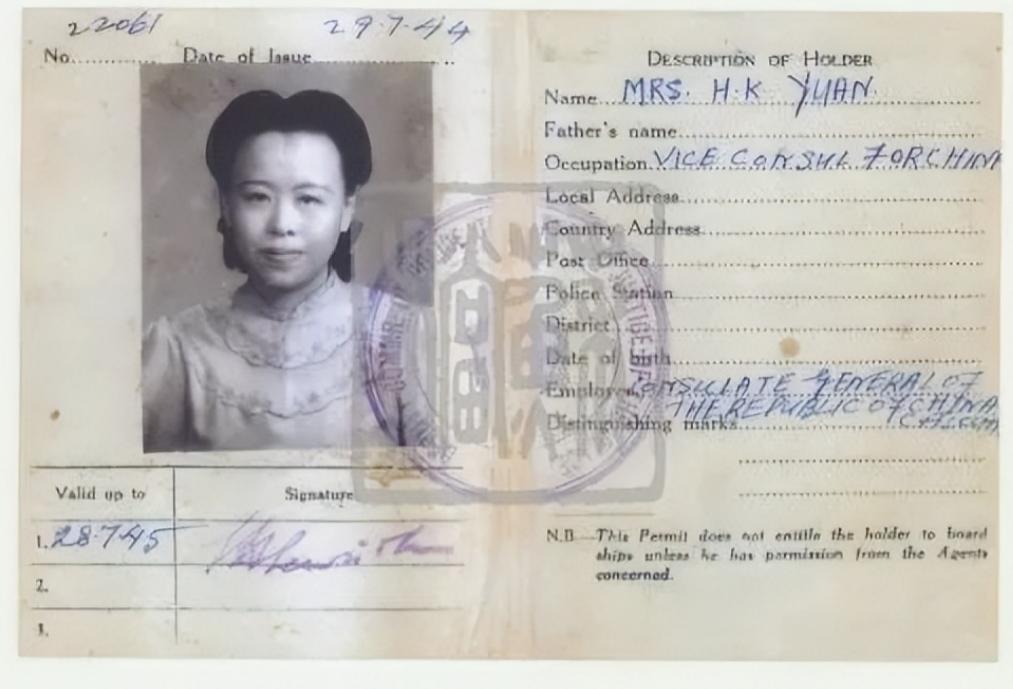 22061 29-7-44
No............ Date of Issue......................
DESCRIPTION OF HOLDER
Name MRS. H.K YUAN.
Father's name
Occupation VICE CONSUL FOR CHINA
Local Address
Country Address
Post Office
Police Station
District
Date of birth
Employer CONSULATE GENERAL OF
THE REPUBLIC OF CHINA
Distinguishing marks
Valid up to Signature
1. 28-7-45
2.
3.
N.B.—This Permit does not entitle the holder to board
ships unless he has permission from the Agents
concerned.